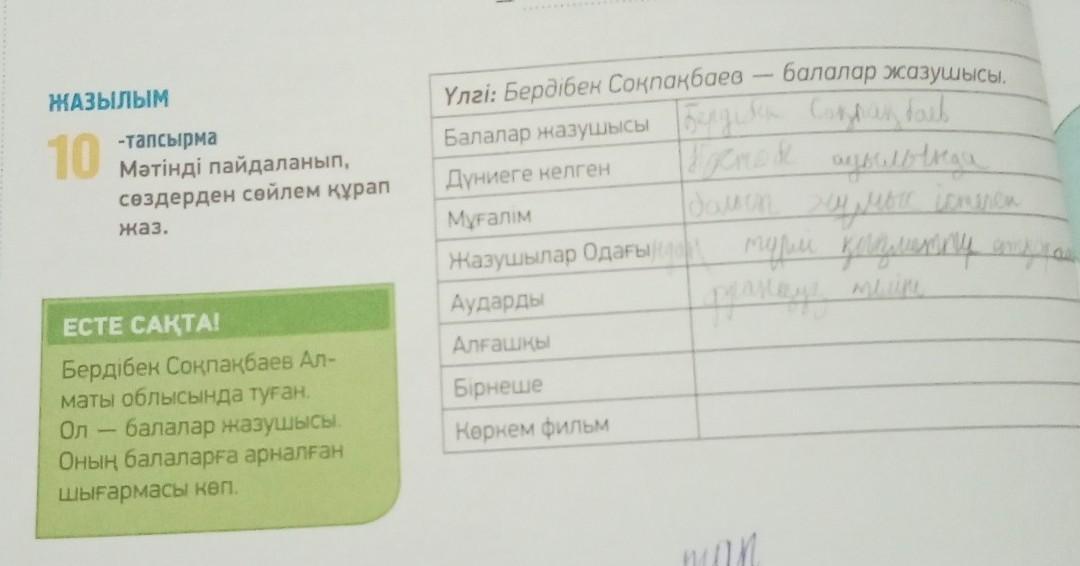 ЖАЗЫЛЫМ
10 -тапсырма
Мәтінді пайдаланып,
сөздерден сөйлем құрап
жаз.
ЕСТЕ САҚТА!
Бердібек Соқпақбаев Ал-
маты облысында туған.
Ол — балалар жазушысы.
Оның балаларға арналған
шығармасы көп.
Үлгі: Бердібек Соқпақбаев — балалар жазушысы.
Балалар жазушысы Бердібек Соқпақбаев
Дүниеге келген ауылында
Мұғалім болып жұмыс істеген
Жазушылар Одағындағы түрлі қызметтер атқарған
Аударды француз тіліне
Алғашқы
Бірнеше
Көркем фильм